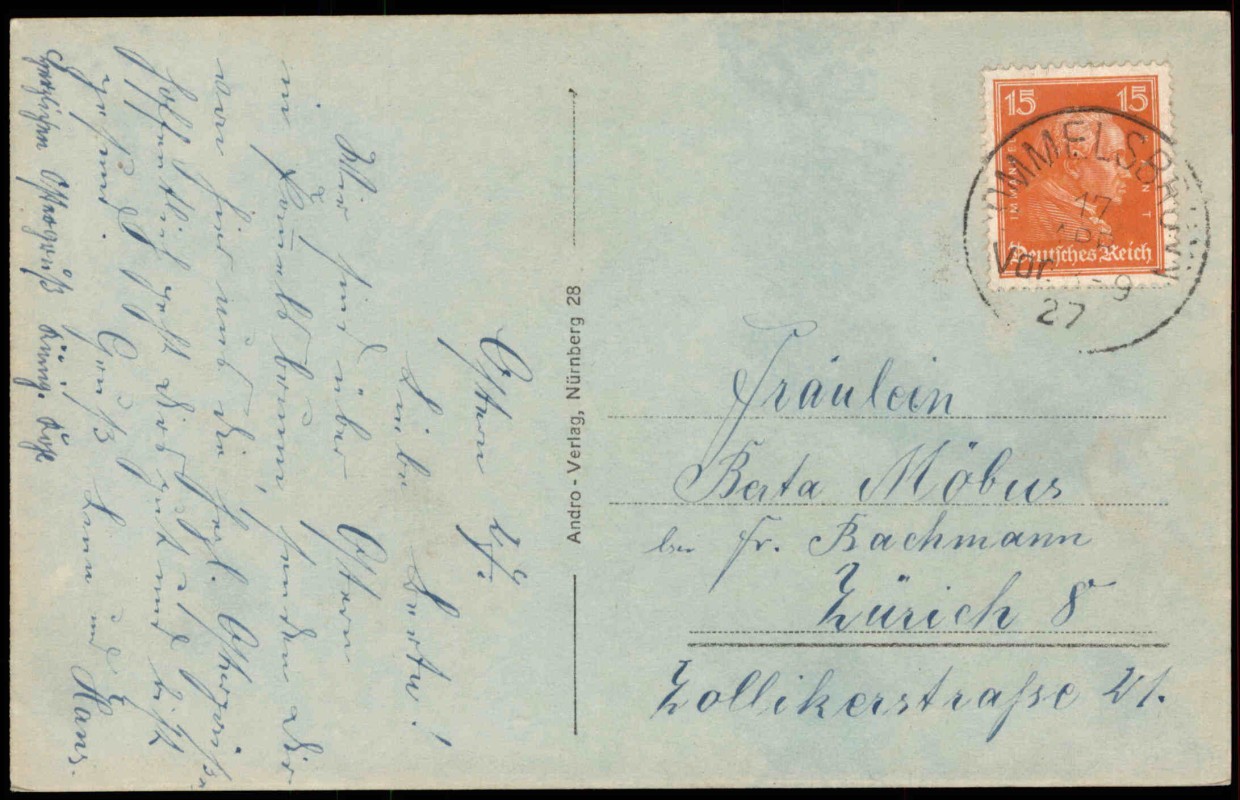 Ostern 27.
Liebe Berta!
Wir sind über Ostern
in Pommelsbrunn, senden Dir
von hier aus die herzl. Ostergrüße.
Hoffentlich geht es Dir gut und bist
gesund.
Gruß Hans.
Herzlichen Ostergruß
Andro-Verlag, Nürnberg 28
15 15
IMMANUEL KANT
Deutsches Reich
POMMELSBRUNN
17
APR
Vor 9
27
Fräulein
Berta Möbus
bei Fr. Bachmann
Zürich 8
Zollikerstraße 21.